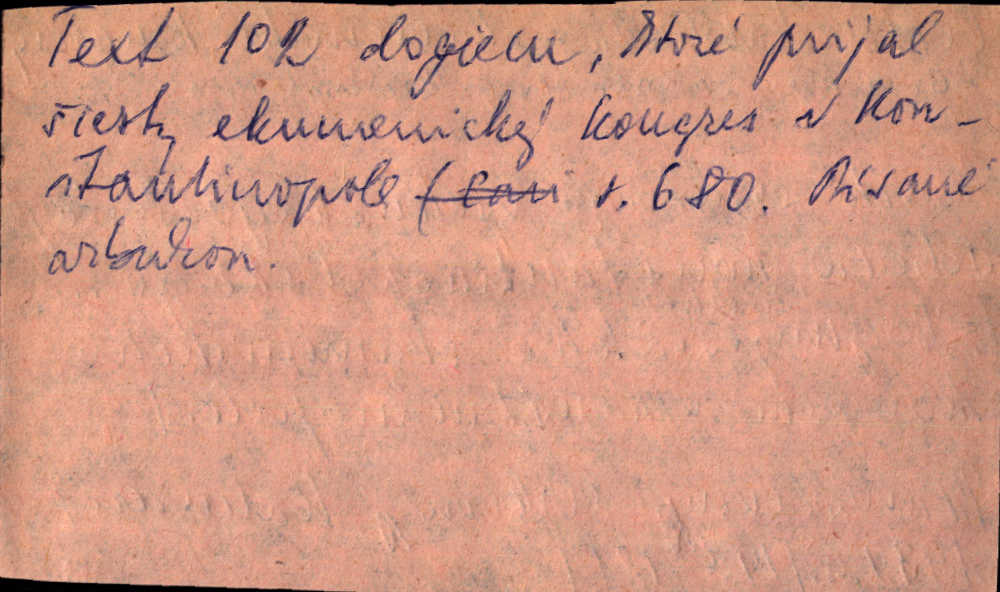 Text 102 dogiem, ktoré prijal
šiesty ekumenický kongres v Kon-
štantinopole ( r. 680. Písané
azbukou.